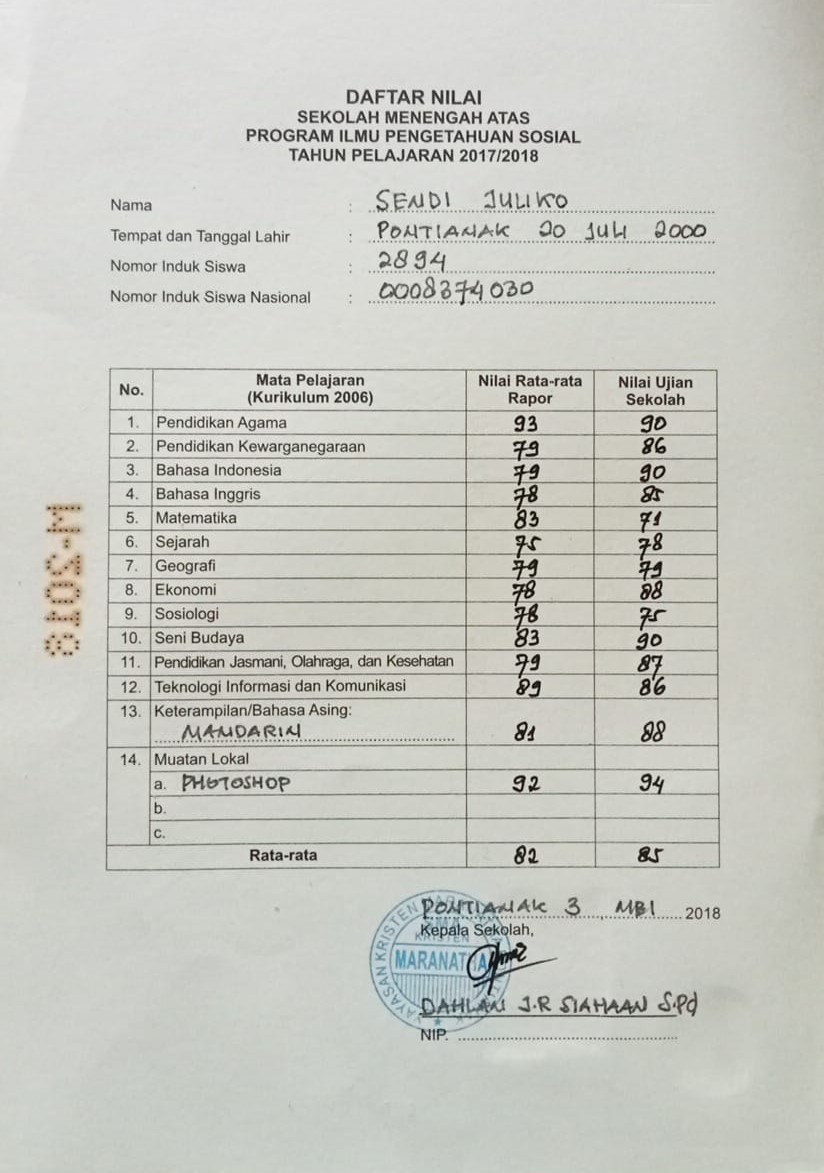 DAFTAR NILAI
SEKOLAH MENENGAH ATAS
PROGRAM ILMU PENGETAHUAN SOSIAL
TAHUN PELAJARAN 2017/2018
Nama : SENDI JULIKO
Tempat dan Tanggal Lahir : PONTIANAK 20 JULI 2000
Nomor Induk Siswa : 2894
Nomor Induk Siswa Nasional : 0008374030
No. Mata Pelajaran (Kurikulum 2006) Nilai Rata-rata Rapor Nilai Ujian Sekolah
1. Pendidikan Agama 93 90
2. Pendidikan Kewarganegaraan 79 86
3. Bahasa Indonesia 79 90
4. Bahasa Inggris 78 85
5. Matematika 83 71
6. Sejarah 75 78
7. Geografi 79 79
8. Ekonomi 78 88
9. Sosiologi 78 75
10. Seni Budaya 83 90
11. Pendidikan Jasmani, Olahraga, dan Kesehatan 79 87
12. Teknologi Informasi dan Komunikasi 89 86
13. Keterampilan/Bahasa Asing:
MANDARIN 81 88
14. Muatan Lokal
a. PHOTOSHOP 92 94
b.
c.
Rata-rata 82 85
M-2018
PONTIANAK 3, MEI 2018
Kepala Sekolah,
YAYASAN KRISTEN
KRISTEN
MARANATHA
DAHLAN J.R SIAHAAN S.Pd
NIP.